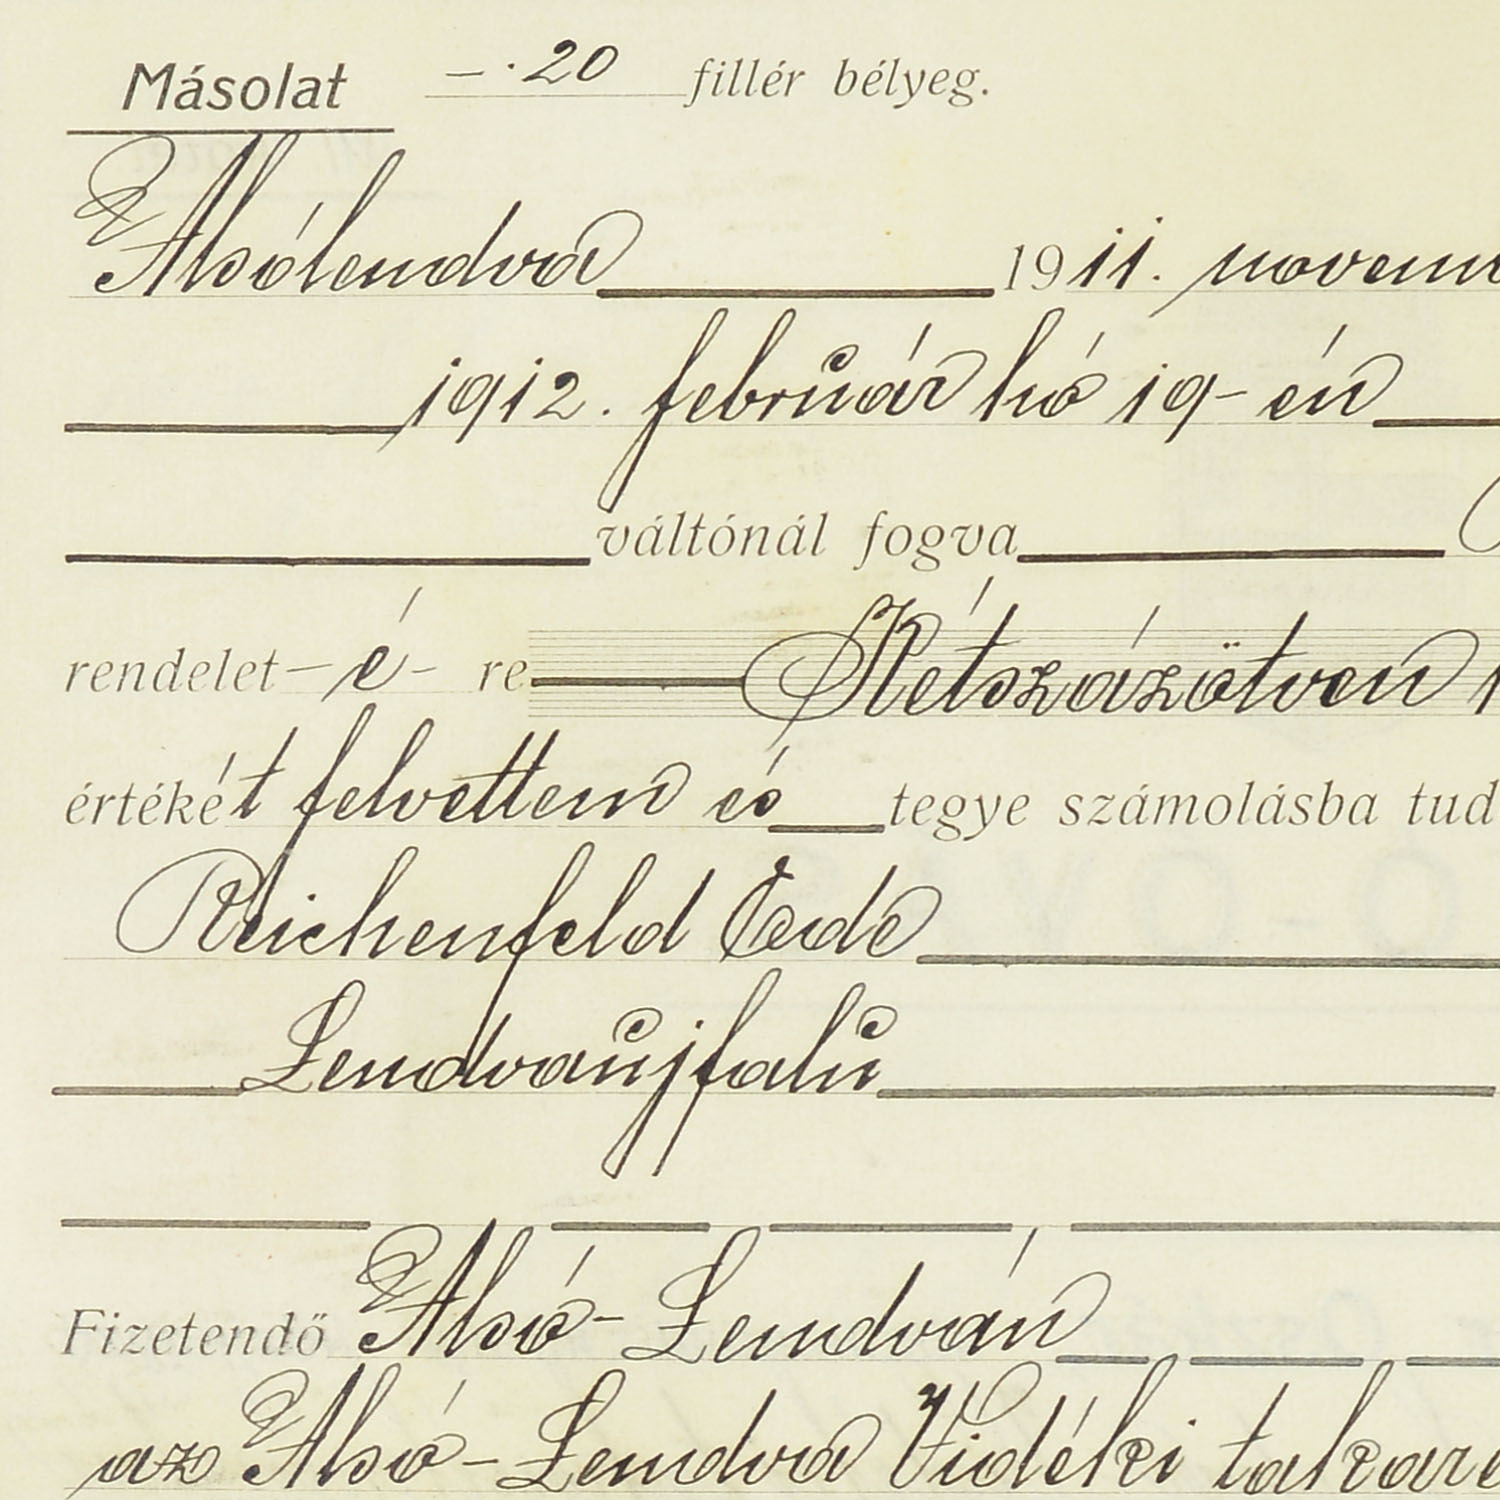 Másolat –·20 fillér bélyeg.
Alsólendva 1911. novem
1912. február hó 19-én
váltónál fogva
rendelet-é- re Kétszázötven
értékét felvettem és tegye számolásba tud
Reichenfeld Ede
Lendvaujfalu
Fizetendő Alsó-Lendván
az Alsó-Lendva Vidéki takaré